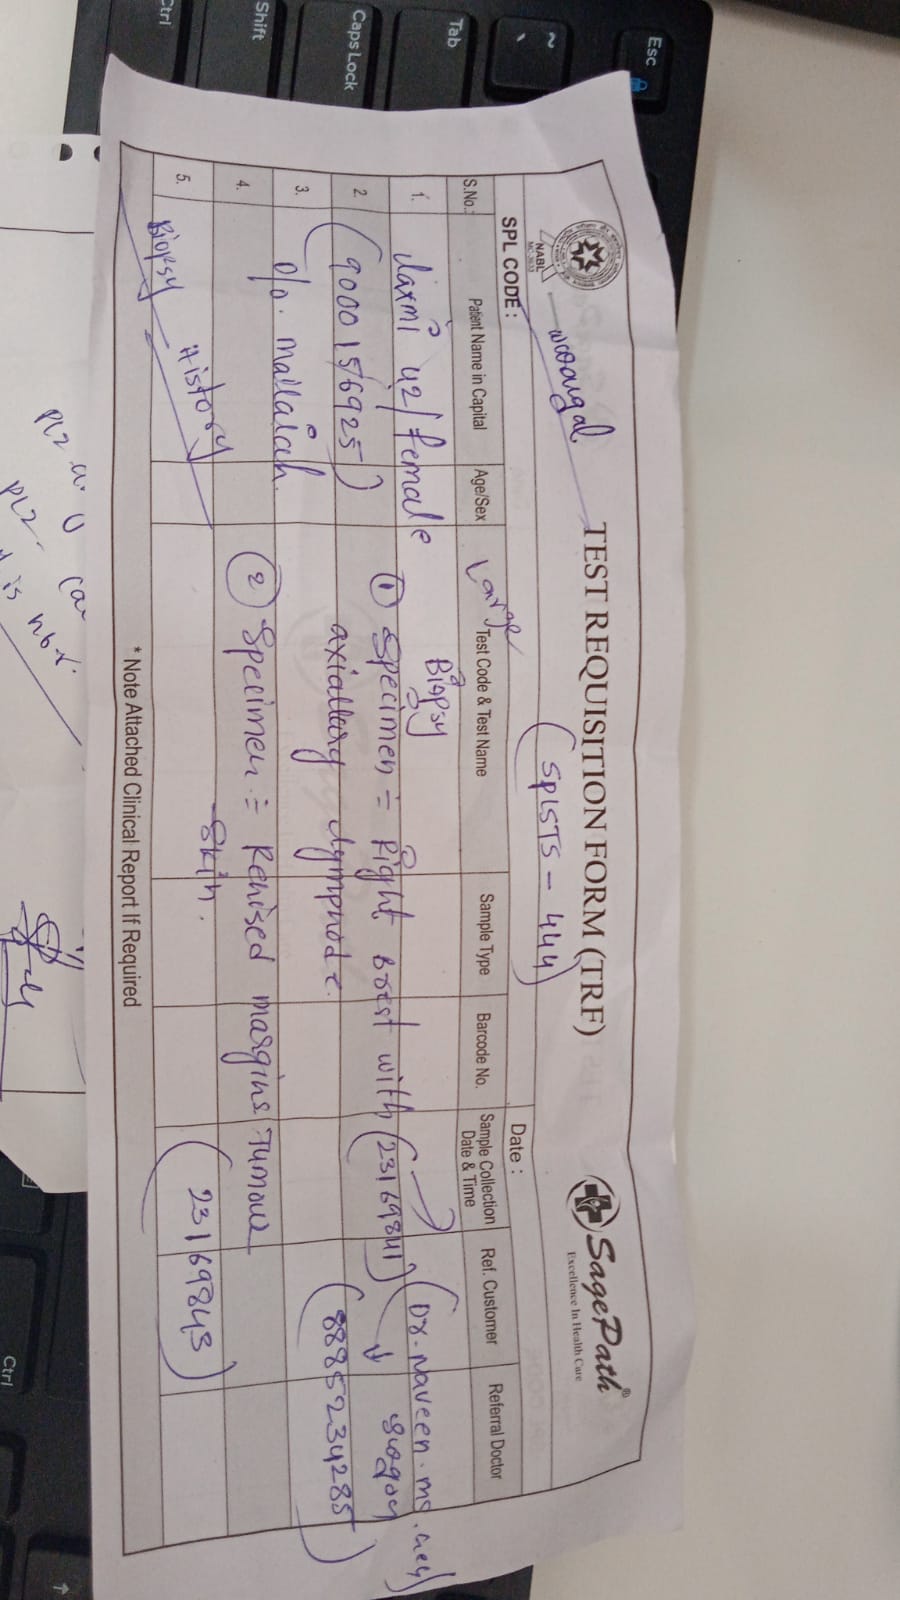 Esc
~
`
Tab
Caps Lock
Shift
Ctrl
NABL
TEST REQUISITION FORM (TRF)
SagePath®
Excellence In Health Care
(SPLSTS - 444)
SPL CODE :
Date :
S.No.:
Patient Name in Capital
Age/Sex
Large
Test Code & Test Name
Sample Type
Barcode No.
Sample Collection
Date & Time
Ref. Customer
Referral Doctor
Biopsy
1.
Laxmi 42/Female
(Dr. Naveen. ms.
① Specimen = Right Brest with (23169841)
2.
(9000156925)
axiallary Lymphnode.
(8885234285)
3.
D/o. Mallaiah.
4.
② Specimen = Renised margins Tumour
Skin.
5.
History
(23169843)
Biopsy
* Note Attached Clinical Report If Required
PLZ
PLZ.
is not.
Ctrl